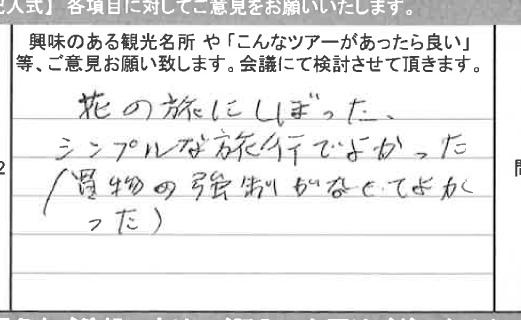 記入式】各項目に対してご意見をお願いいたします。
興味のある観光名所 や「こんなツアーがあったら良い」
等、ご意見お願い致します。会議にて検討させて頂きます。
花の旅にしぼった、
シンプルな旅行でよかった
(買物の強制がなくてよか
った)
2